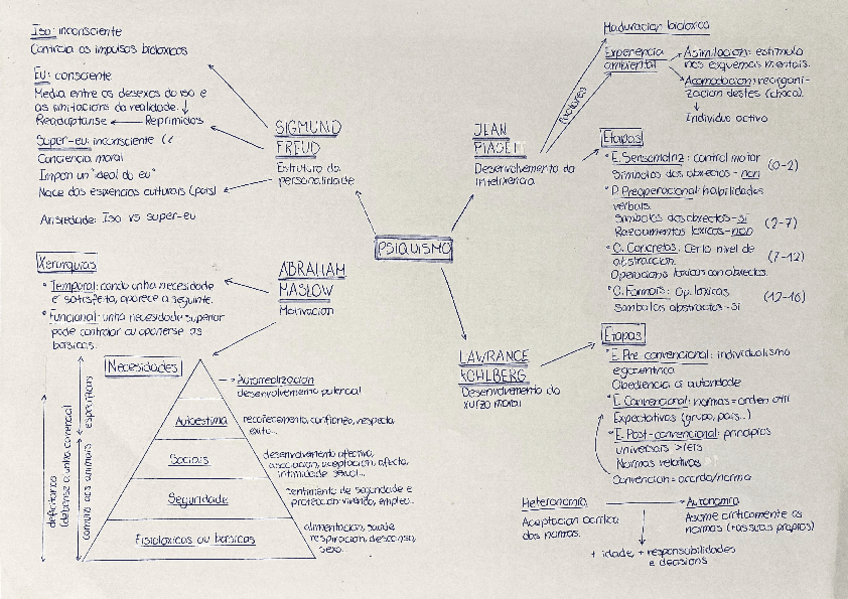 PSIQUISMO
SIGMUND
FREUD
Estrutura da
personalidade
Iso: inconsciente
Controla os impulsos biolóxicos
Eu: consciente
Media entre os desexos do iso e
as limitacións da realidade.
Readáptanse ← Reprimidos
Super-eu: inconsciente
Conciencia moral
Impón un "ideal do eu"
Nace das esixencias culturais (pais)
Ansiedade: Iso vs super-eu
ABRAHAM
MASLOW
Motivación
Xerarquías
• Temporal: cando unha necesidade
é satisfeita, aparece a seguinte.
• Funcional: unha necesidade superior
pode controlar ou opoñerse ás
básicas.
Necesidades
Autorrealización
desenvolvemento potencial
Autoestima
recoñecemento, confianza, respecto,
éxito...
Sociais
desenvolvemento afectivo,
asociación, aceptación, afecto,
intimidade sexual...
Seguridade
sentimento de seguridade e
protección: vivenda, emprego...
Fisiolóxicas ou básicas
alimentación, saúde,
respiración, descanso,
sexo...
deficitarias
(débense a unha carencia)
específicas
común aos animais
JEAN
PIAGET
Desenvolvemento da
intelixencia
factores
Maduración biolóxica
Experiencia
ambiental
Asimilación: estímulo
nos esquemas mentais.
Acomodación: reorgani-
zación destes (choca).
Individuo activo
Etapas
• E. Sensomotriz: control motor
Símbolos dos obxectos - non
(0-2)
• P. Preoperacional: habilidades
verbais.
Símbolos dos obxectos - si
Razoamentos lóxicos - non
(2-7)
• O. Concretas: Certo nivel de
abstracción.
Operacións lóxicas con obxectos.
(7-12)
• O. Formais: Op. lóxicas
Símbolos abstractos - si
(12-16)
LAWRANCE
KOHLBERG
Desenvolvemento do
xuízo moral
Etapas
• E. Pre-convencional: individualismo
egocéntrico
Obediencia á autoridade
• E. Convencional: normas = orden
Expectativas (grupo, pais...)
• E. Post-convencional: principios
universais > leis
Normas relativas
Convención = acordo/norma
Heteronomía
Aceptación acrítica
das normas.
Autonomía
Asume criticamente as
normas (+ as súas propias)
+ idade, + responsabilidades
e decisións